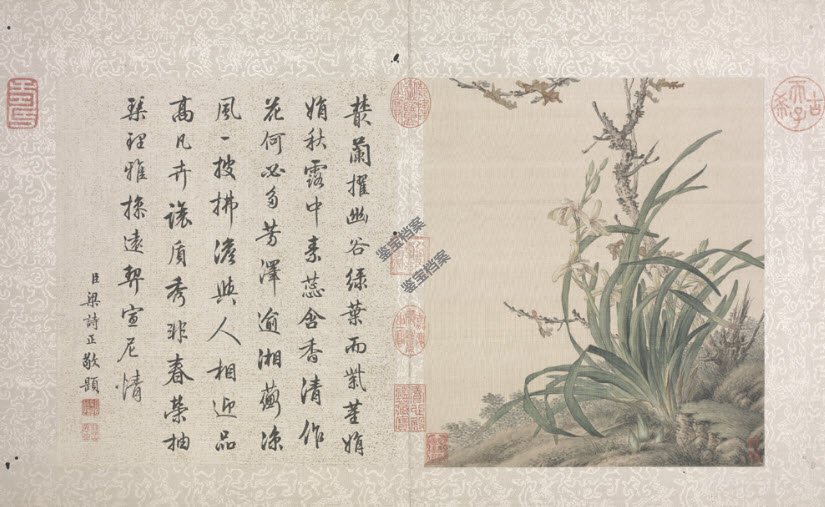 叢蘭擢幽谷綠葉而紫莖娟
娟秋露中素蕊含香清作
花何必多芳澤逾湘蘅涼
風一披拂澹與人相迎品
高凡卉讓質秀非春榮抽
琴理雅操遠契宣尼情
臣梁詩正敬題
古希天子
鉴宝档案
鉴宝档案